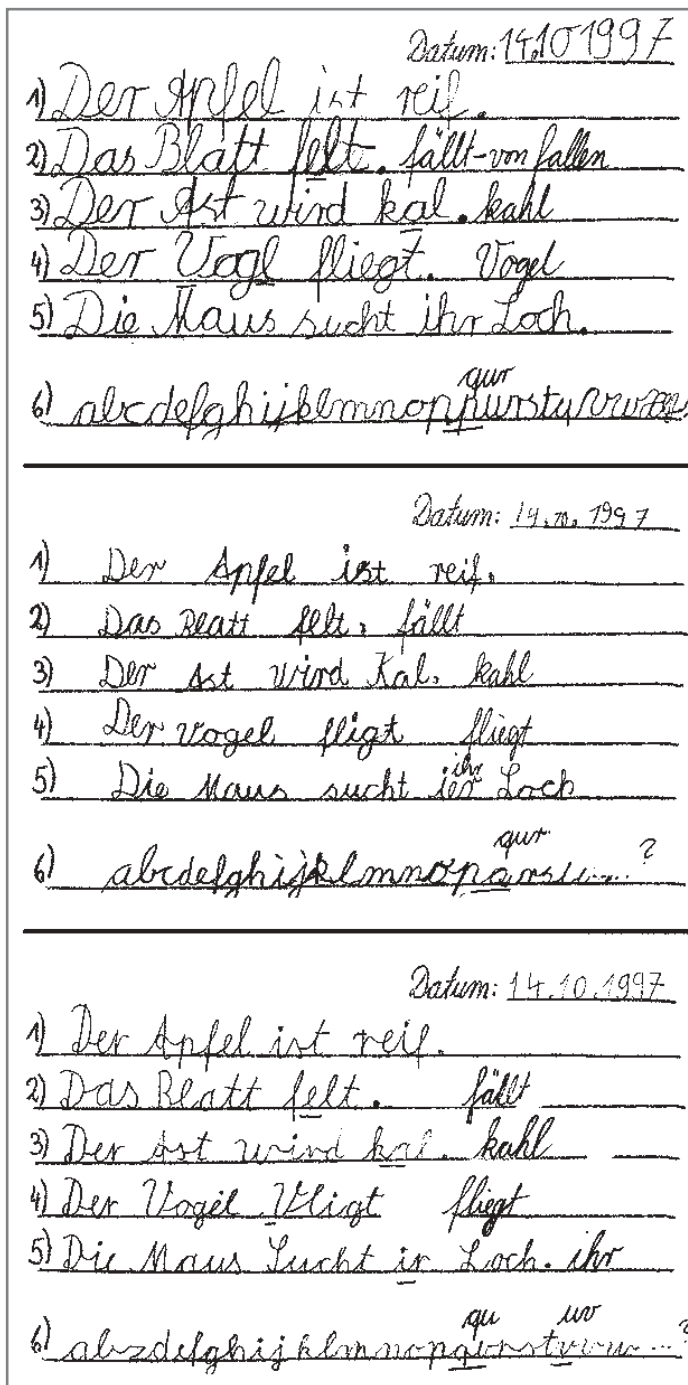 Datum: 14.10 1997
1) Der Apfel ist reif.
2) Das Blatt felt. fällt-von fallen
3) Der Ast wird kal. kahl
4) Der Vogl fliegt. Vogel
5) Die Maus sucht ihr Loch.
qur
6) abcdefghijklmnoppursty
Datum: 14.10. 1997
1) Der Apfel ist reif.
2) Das Blatt felt. fällt
3) Der Ast wird Kal. kahl
4) Der Vogel fligt fliegt
ihr
5) Die Maus sucht ier Loch
qur ?
6) abcdefghijklmnoparsu....
Datum: 14.10.1997
1) Der Apfel ist reif.
2) Das Blatt felt. fällt
3) Der Ast wird kal. kahl
4) Der Vogel Vligt fliegt
5) Die Maus Sucht ir Loch. ihr
qu uv ?
6) abzdefghijklmnopqurstvwu...